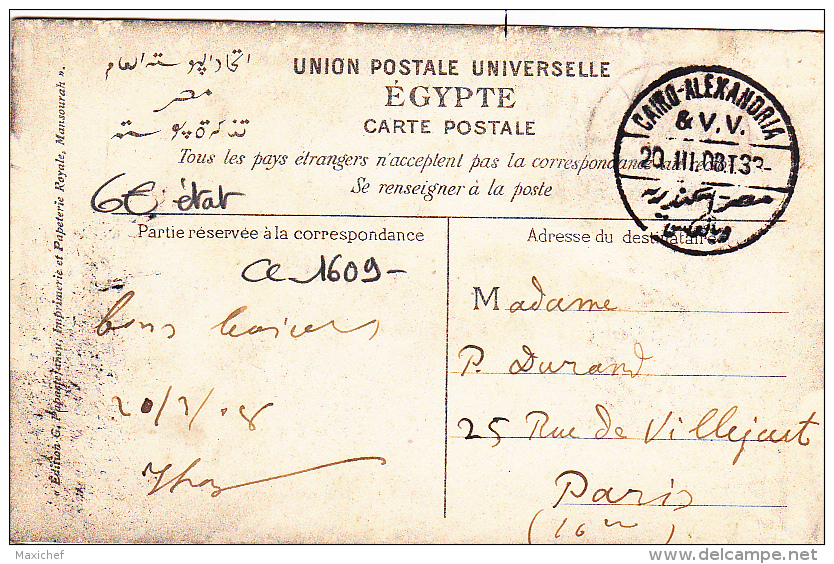 اتحاد البوسته العام
مصر
تذكرة بوسته
UNION POSTALE UNIVERSELLE
ÉGYPTE
CARTE POSTALE
Tous les pays étrangers n'acceptent pas la correspondance au recto.
Se renseigner à la poste
CAIRO-ALEXANDRIA
& V.V.
20.III.08 T.32-
مصر اسكندريه
وبالعكس
6€ état
Partie réservée à la correspondance
Adresse du destinataire
Ce 1609-
bons baisers
20/3/08
Madame
P. Durand
25 Rue de Villejust
Paris
(16me)
« Edition G. Papouchanou, Imprimerie et Papeterie Royale, Mansourah ».
Maxichef
delcampe.net